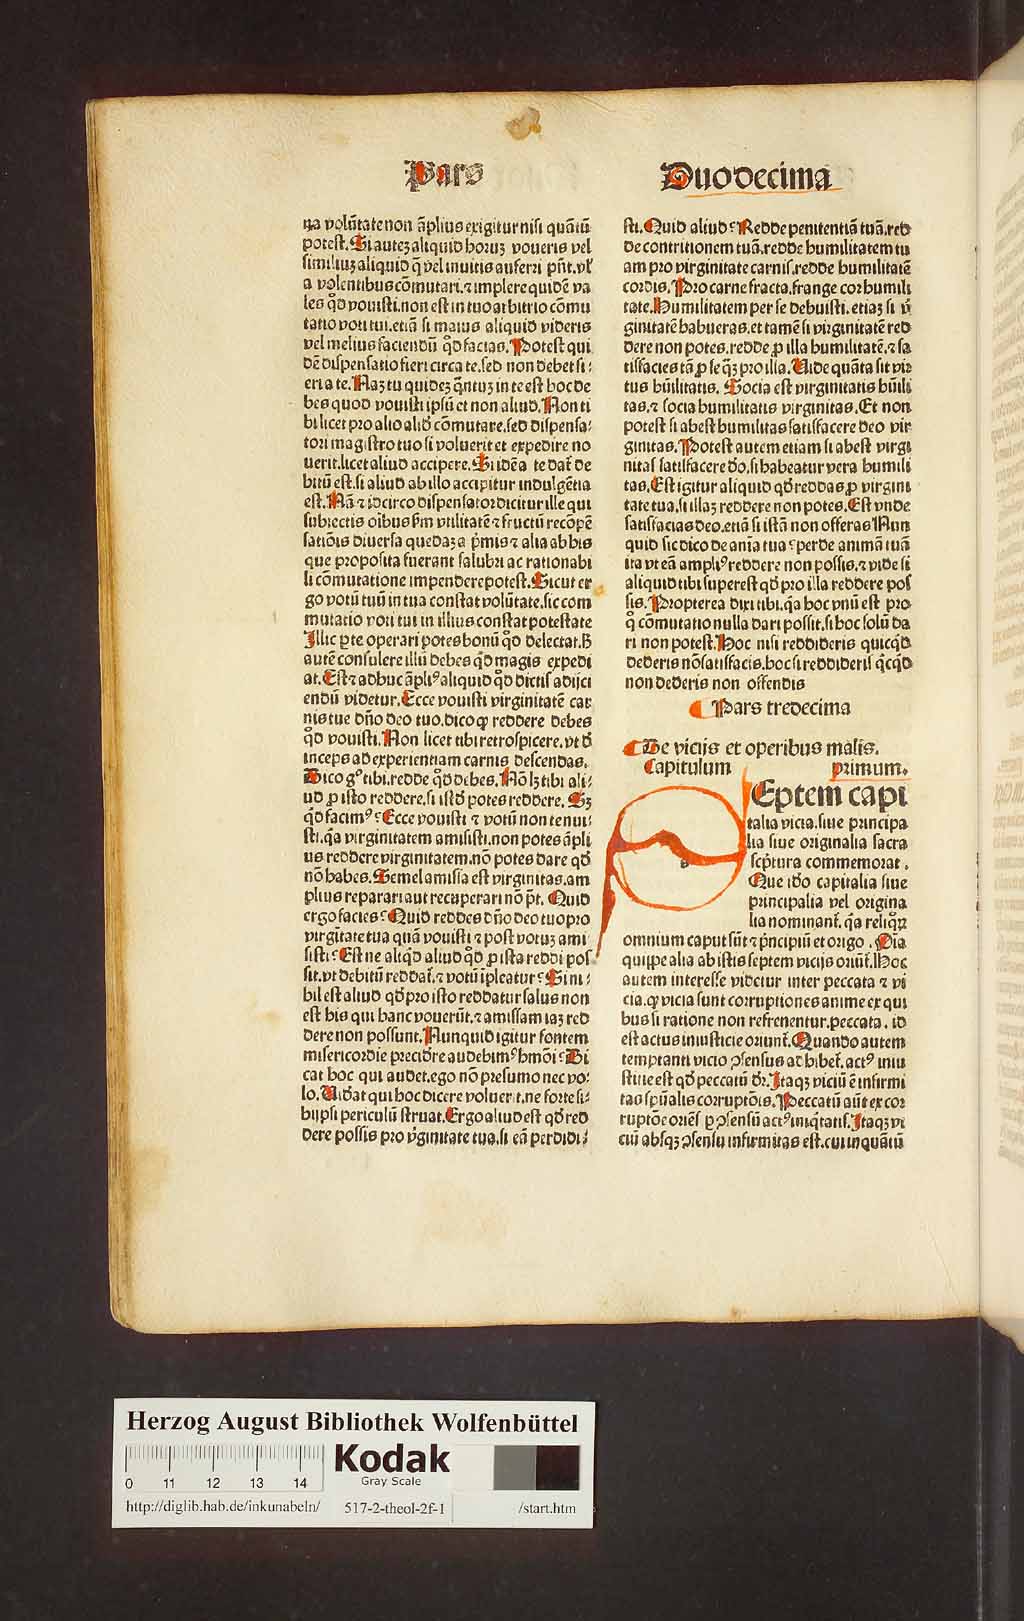 Pars
Duodecima
na volūtate non āplius exigitur nisi quātū
potest. Si autez aliquid horuz voueris vel
similiuz aliquid q̄ vel inuitis auferri pn̄t. vl'
a volentibus cōmutari. ⁊ implere quidē va
les qd̄ vouisti. non est in tuo arbitrio cōmu
tatio voti tui. etiā si maius aliquid videris
vel melius faciendū qd̄ facias. Potest qui
dē dispensatio fieri circa te. sed non debet fi⸗
eri a te. Naz tu quidez q̄ntuz in te est hoc de
bes quod vouisti ipsū et non aliud. Non ti
bi licet pro alio alid̄ cōmutare. sed dispensa⸗
tori magistro tuo si voluerit et expedire no
uerit. licet aliud accipere. Si idē a te dat̄ de
bitū est. si aliud ab illo accipitur indulgētia
est. Nā ⁊ idcirco dispensator dicitur ille qui
subiectis oībus fm̄ vtilitatē ⁊ fructū recōpē
satiōis diuersa quedaz a p̄mis ⁊ alia ab his
que proposita fuerant salubri ac rationabi
li cōmutatione impendere potest. Sicut er
go votū tuū in tua constat volūtate. sic com
mutatio voti tui in illius constat potestate
Illic ꝑte operari potes bonū qd̄ delectat. H̄
autē consulere illū debes qd̄ magis expedi
at. Est ⁊ adhuc āpliꝰ aliquid qd̄ dictis adijci
endū videtur. Ecce vouisti virginitatē car
nis tue dn̄o deo tuo. dico ꝙ reddere debes
qd̄ vouisti. Non licet tibi retrospicere. vt d̄
inceps ad experientiam carnis descendas.
Dico gͦ tibi. redde qd̄ debes. Nō lz tibi ali⸗
ud ꝓ isto reddere. si istd̄ potes reddere. Sz
qd̄ facimꝰ? Ecce vouisti ⁊ votū non tenui⸗
sti. q̄a virginitatem amisisti. non potes āpli
us reddere virginitatem. nō potes dare qd̄
nō habes. Semel amissa est virginitas. am
plius reparari aut recuperari nō p̄t. Quid
ergo facies? Quid reddes dn̄o deo tuo pro
virgītate tua quā vouisti ⁊ post votuz ami
sisti? Est ne aliqd̄ aliud qd̄ ꝓ ista reddi pos
sit. vt debitū reddat̄. ⁊ votū īpleatur? Si ni⸗
hil est aliud qd̄ pro isto reddatur salus non
est his qui hanc vouerūt. ⁊ amissam iaz red
dere non possunt. Nunquid igitur fontem
misericordie precidere audebimꝰ hm̄oi? Di
cat hoc qui audet. ego nō presumo nec vo⸗
lo. Videat qui hoc dicere voluerit. ne forte si⸗
bijpsi periculū struat. Ergo aliud est qd̄ red
dere possis pro v̄ginitate tua. si eā perdidi⸗
sti. Quid aliud? Redde penitentiā tuā. red
de contritionem tuā. redde humilitatem tu
am pro virginitate carnis. redde humilitatē
cordis. Pro carne fracta. frange cor humili
tate. Humilitatem per se debuisti. etiaz si v̄
ginitatē habueras. et tamē si virginitatē red
dere non potes. redde ꝓ illa humilitatē. ⁊ sa
tisfacies tā ꝓ se qz pro illa. Vide quāta sit vir
tus hūilitatis. Socia est virginitatis hūili
tas. ⁊ socia humilitatis virginitas. Et non
potest si abest humilitas satisfacere deo vir
ginitas. Potest autem etiam si abest virgi
nitas satisfacere dō. si habeatur vera humili
tas. Est igitur aliquid qd̄ reddas ꝓ virgini
tate tua. si illaz reddere non potes. Est vnde
satisfacias deo. etiā si istā non offeras Nun
quid sic dico de anīa tua? perde animā tuā
ita vt eā ampliꝰ reddere non possis. ⁊ vide si
aliquid tibi superest qd̄ pro illa reddere pos
sis. Propterea dixi tibi. q̄a hoc vnū est pro
q̄ cōmutatio nulla dari possit. si hoc solū da
ri non potest. Hoc nisi reddideris quicqd̄
dederis nō satisfacis. hoc si reddideris q̄cqd̄
non dederis non offendis
Pars tredecima
De vicijs et operibus malis.
Capitulum primum.
s
Eptem capi
talia vicia. siue principa
lia siue originalia sacra
sc̄ptura commemorat.
Que idō capitalia siue
principalia vel origina
lia nominant̄. q̄a reliqꝝ
omnium caput sūt ⁊ p̄ncipiū et origo. Oīa
quippe alia ab istis septem vicijs oriūt̄. Hoc
autem interesse videtur inter peccata ⁊ vi
cia. ꝙ vicia sunt corruptiones anime ex qui
bus si ratione non refrenentur. peccata. id
est actus iniusticie oriunt̄. Quando autem
temptanti vicio ꝯsensus adhibet̄. actꝰ iniu
sticie est qd̄ peccatū dr̄. Itaqz viciū ē infirmi
tas spūalis corruptōis. Peccatū aūt ex cor
ruptōe oriēs ꝑ ꝯsensū actꝰ iniq̄tatis. Itaqz vi
ciū absqz ꝯsensu infirmitas est. cui inquātū
Herzog August Bibliothek Wolfenbüttel
0 11 12 13 14
Kodak
Gray Scale
http://diglib.hab.de/inkunabeln/ 517-2-theol-2f-1 /start.htm